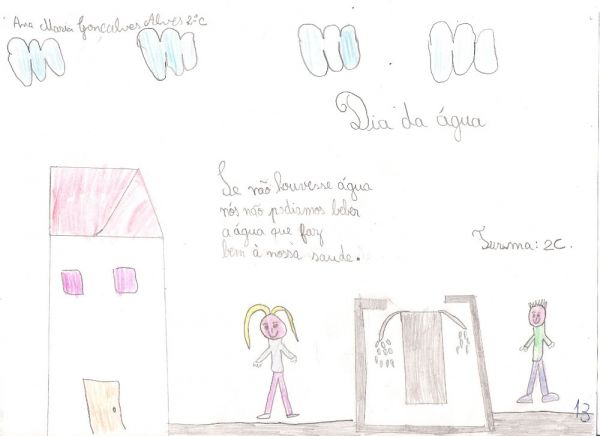 Ana Maria Gonçalves Alves 2ºC
Dia da água
Se não houvesse água
nós não podiamos beber
a água que faz
bem à nossa saude.
Turma: 2C.
13